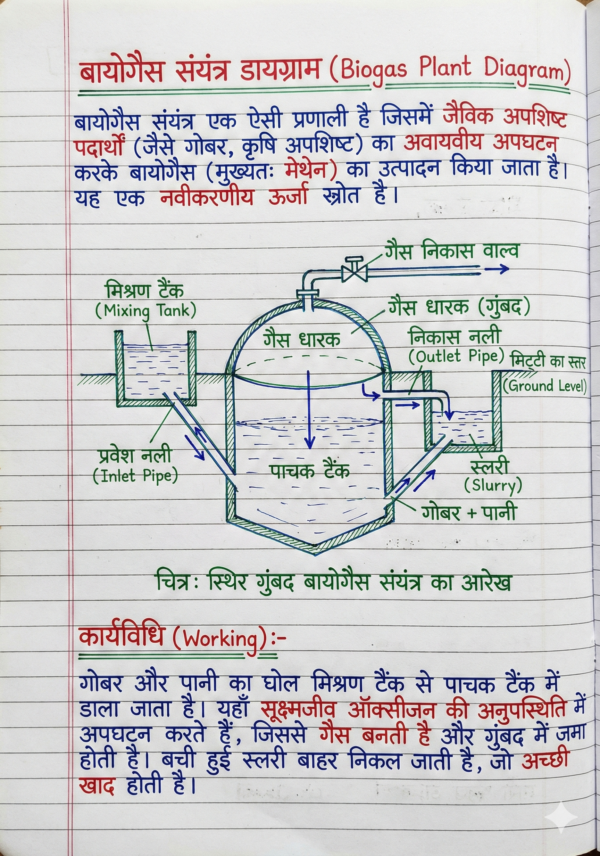 बायोगैस संयंत्र डायग्राम (Biogas Plant Diagram)
बायोगैस संयंत्र एक ऐसी प्रणाली है जिसमें जैविक अपशिष्ट
पदार्थों (जैसे गोबर, कृषि अपशिष्ट) का अवायवीय अपघटन
करके बायोगैस (मुख्यतः मेथेन) का उत्पादन किया जाता है।
यह एक नवीकरणीय ऊर्जा स्रोत है।
गैस निकास वाल्व
मिश्रण टैंक
(Mixing Tank)
गैस धारक (गुंबद)
गैस धारक
निकास नली
(Outlet Pipe)
मिटटी का स्तर
(Ground Level)
प्रवेश नली
(Inlet Pipe)
पाचक टैंक
स्लरी
(Slurry)
गोबर + पानी
चित्र: स्थिर गुंबद बायोगैस संयंत्र का आरेख
कार्यविधि (Working):-
गोबर और पानी का घोल मिश्रण टैंक से पाचक टैंक में
डाला जाता है। यहाँ सूक्ष्मजीव ऑक्सीजन की अनुपस्थिति में
अपघटन करते हैं, जिससे गैस बनती है और गुंबद में जमा
होती है। बची हुई स्लरी बाहर निकल जाती है, जो अच्छी
खाद होती है।